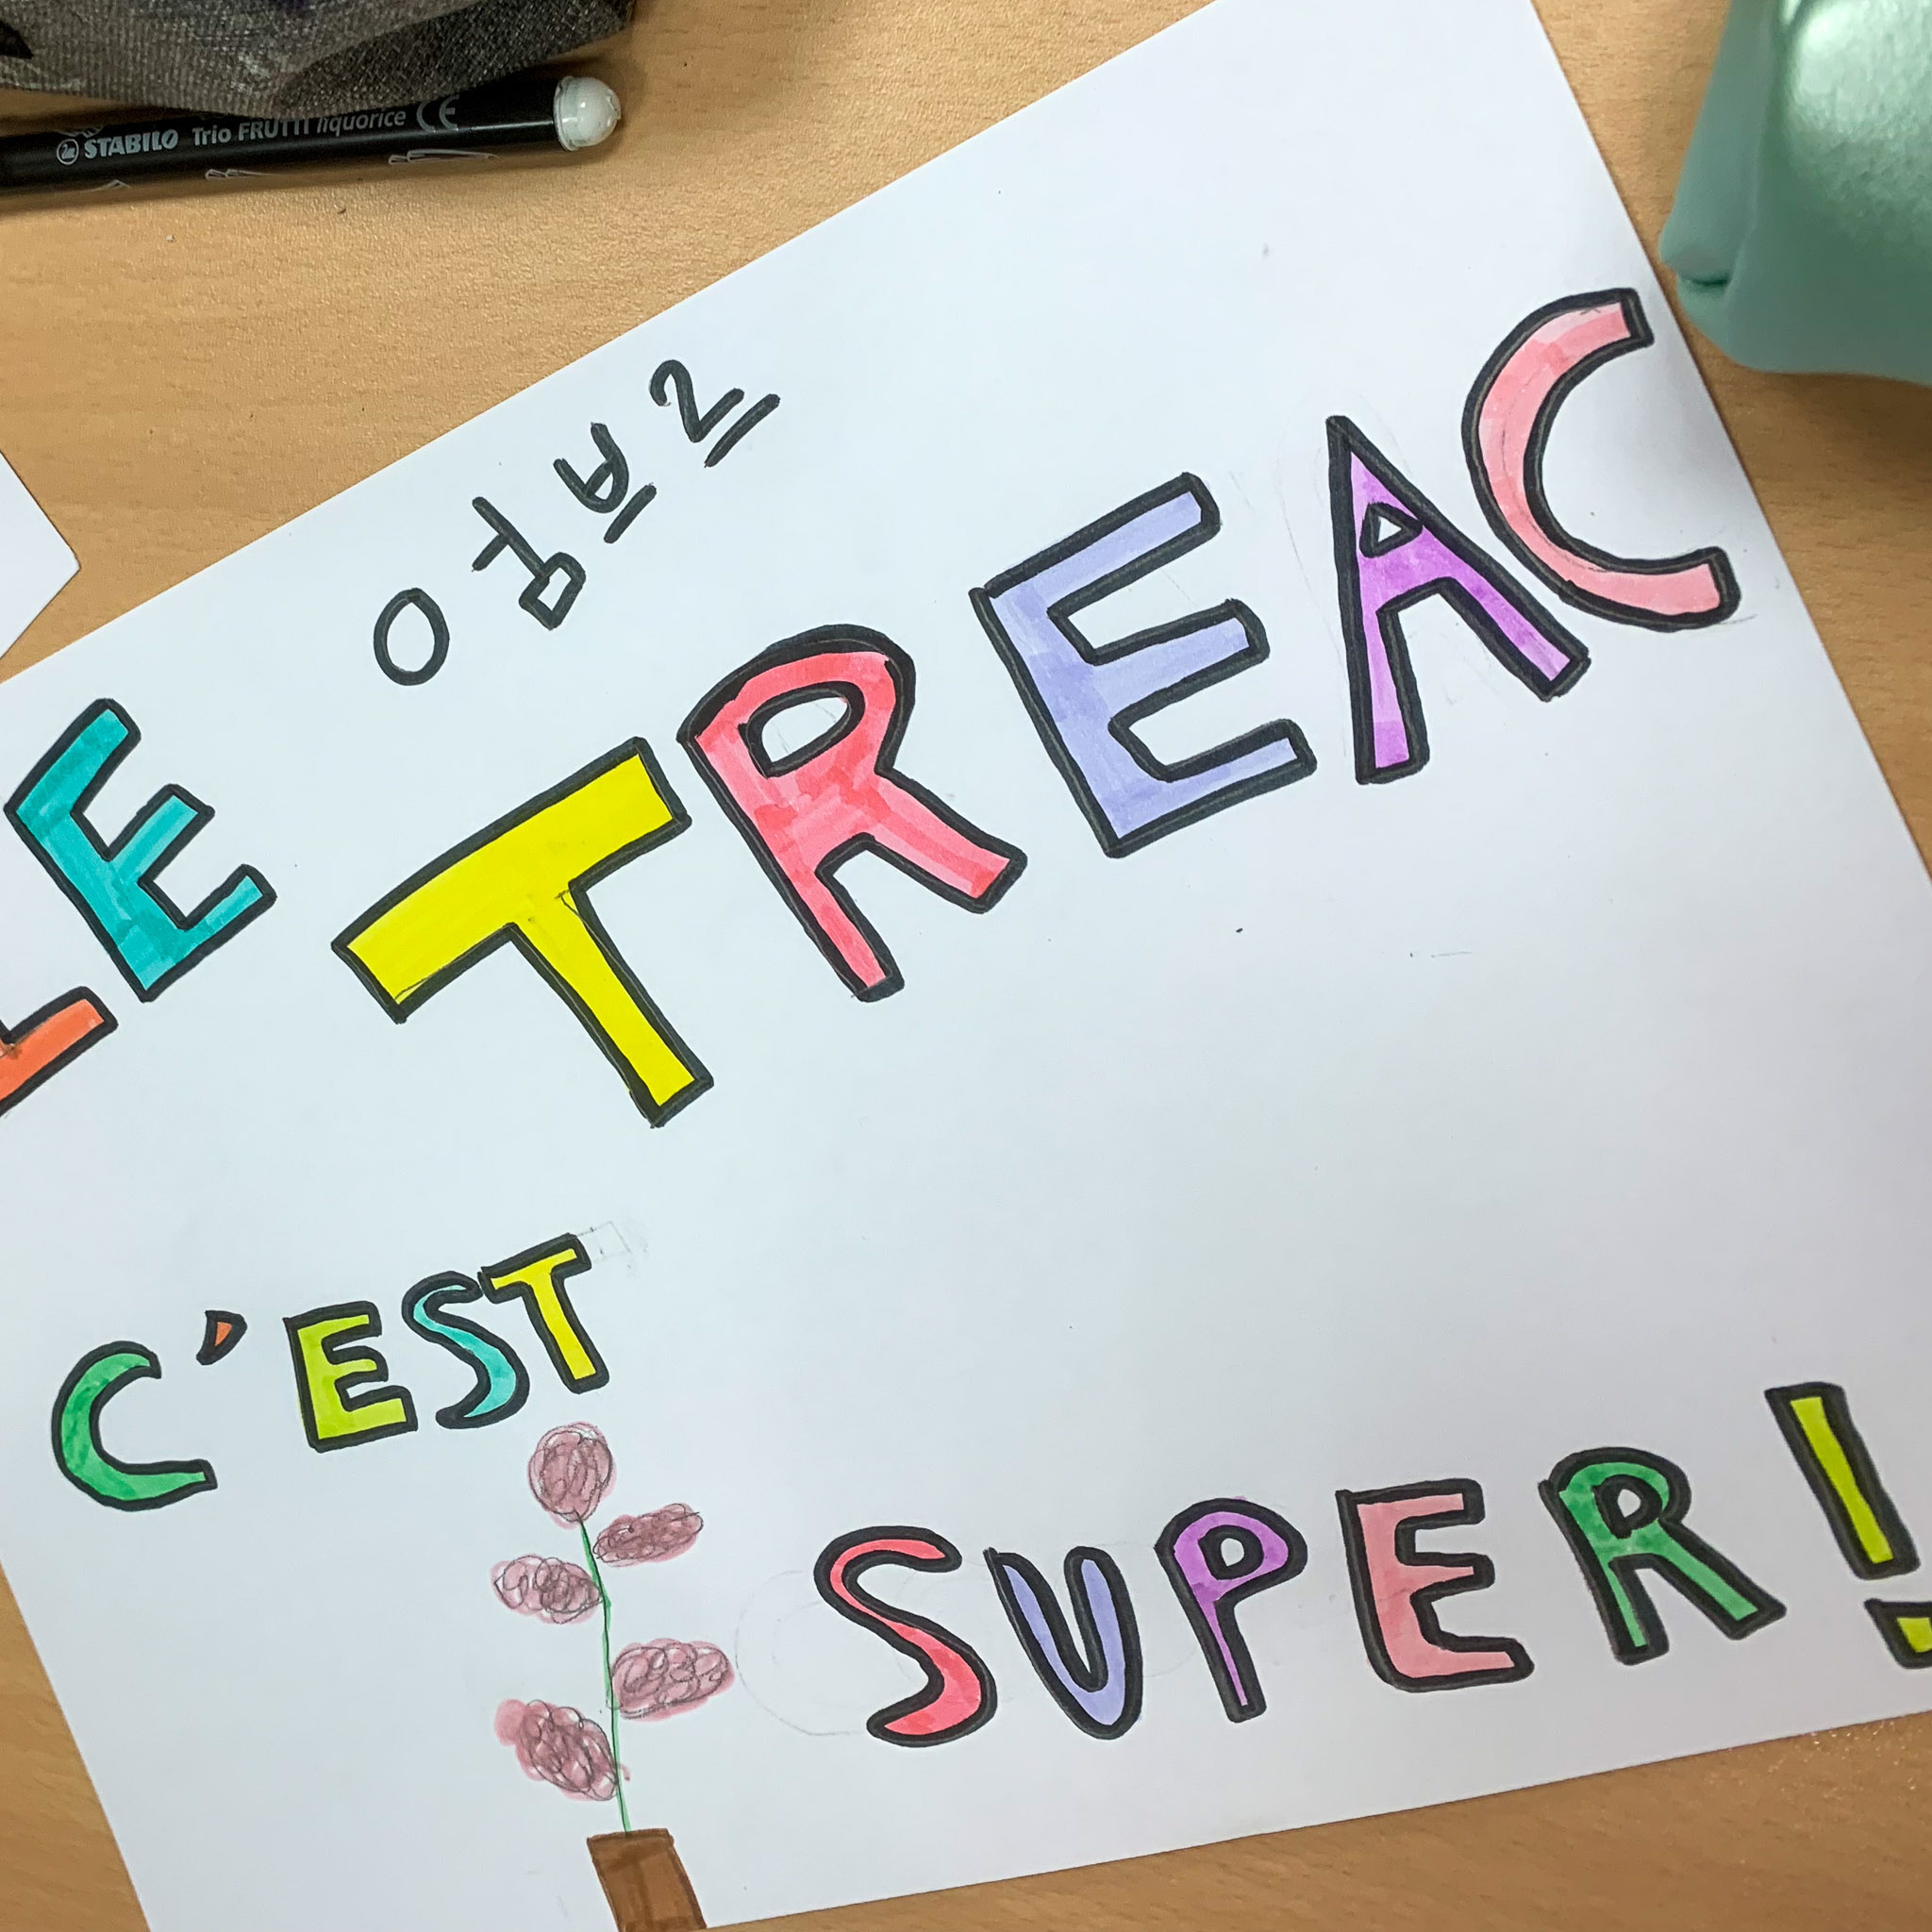 STABILO Trio FRUTTI liquorice CE
LE TREAC
C'EST
SUPER !